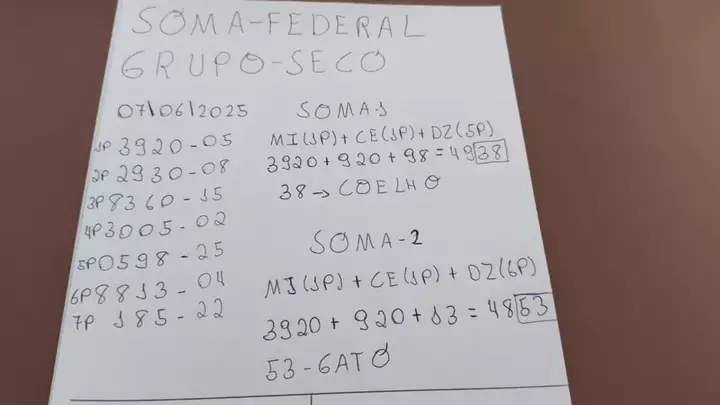 SOMA-FEDERAL
GRUPO-SECO
07/06/2025
1P 3920-05
2P 2930-08
3P 8360-15
4P 3005-02
5P 0598-25
6P 8813-04
7P 185-22
SOMA-1
MI(1P)+CE(1P)+DZ(5P)
3920+920+98=4938
38→COELHO
SOMA-2
MI(1P)+CE(1P)+DZ(6P)
3920+920+13=4853
53-GATO